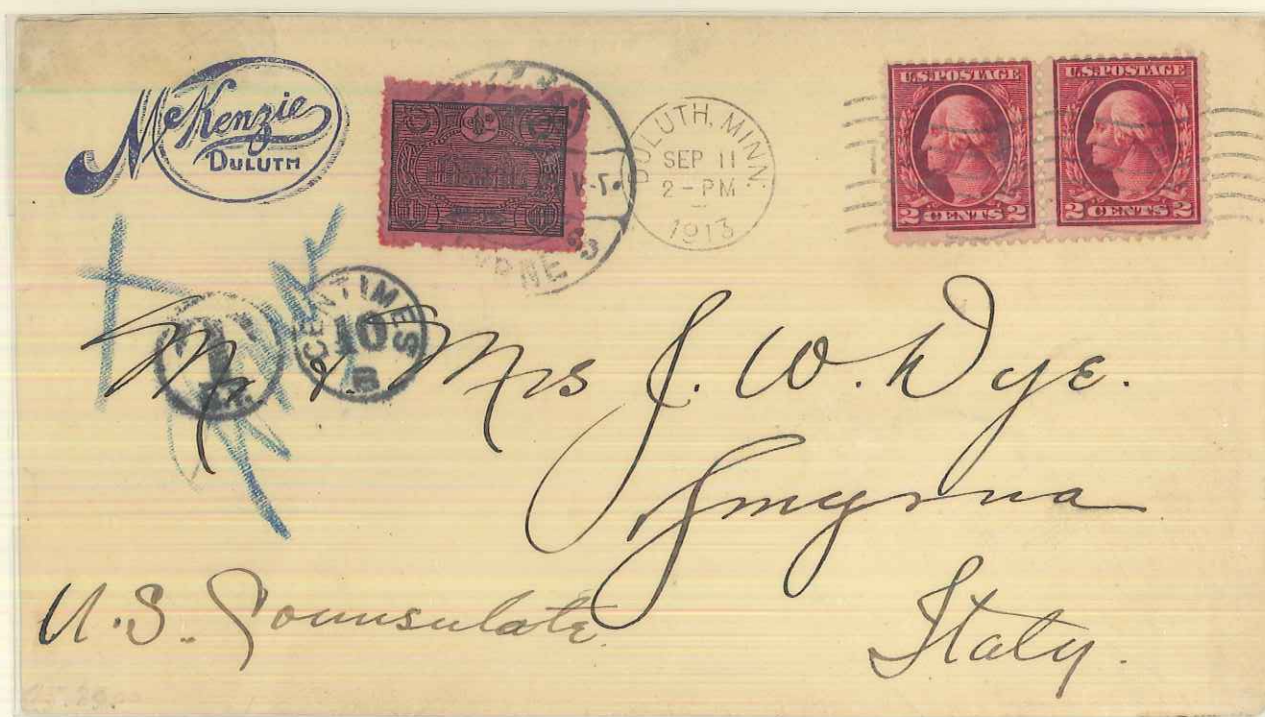 McKenzie
DULUTH
DULUTH, MINN.
SEP 11
2-PM
1913
U.S.POSTAGE
2 CENTS 2
U.S.POSTAGE
2 CENTS 2
CENTIMES
10
B
T
Mr & Mrs J. W. Dye.
Smyrna
U.S. Counsulate
Italy.